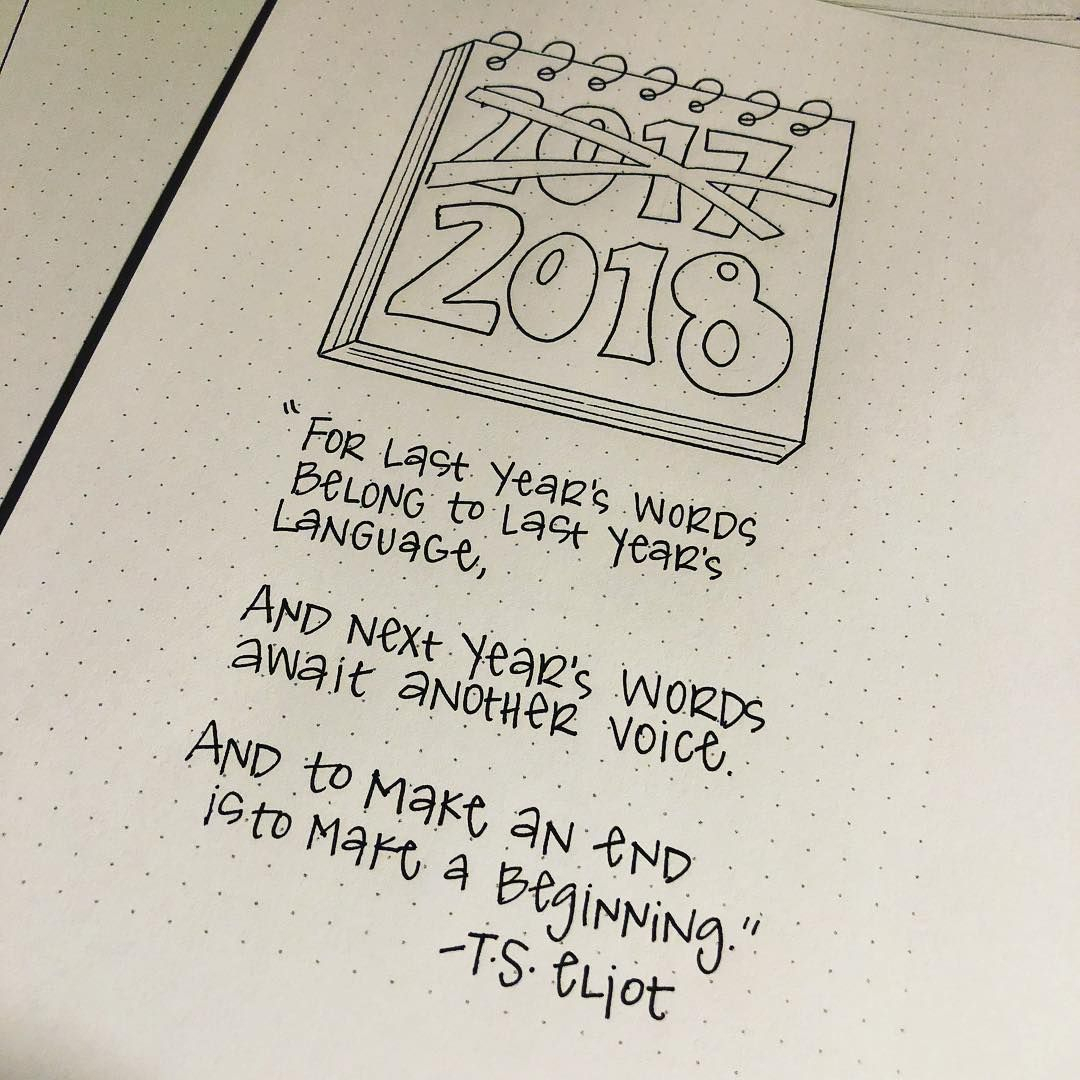 2017
2018
"For Last Year's Words
Belong to Last Year's
Language,
And Next Year's Words
await another voice.
And to Make an end
is to Make a Beginning."
-T.S. Eliot